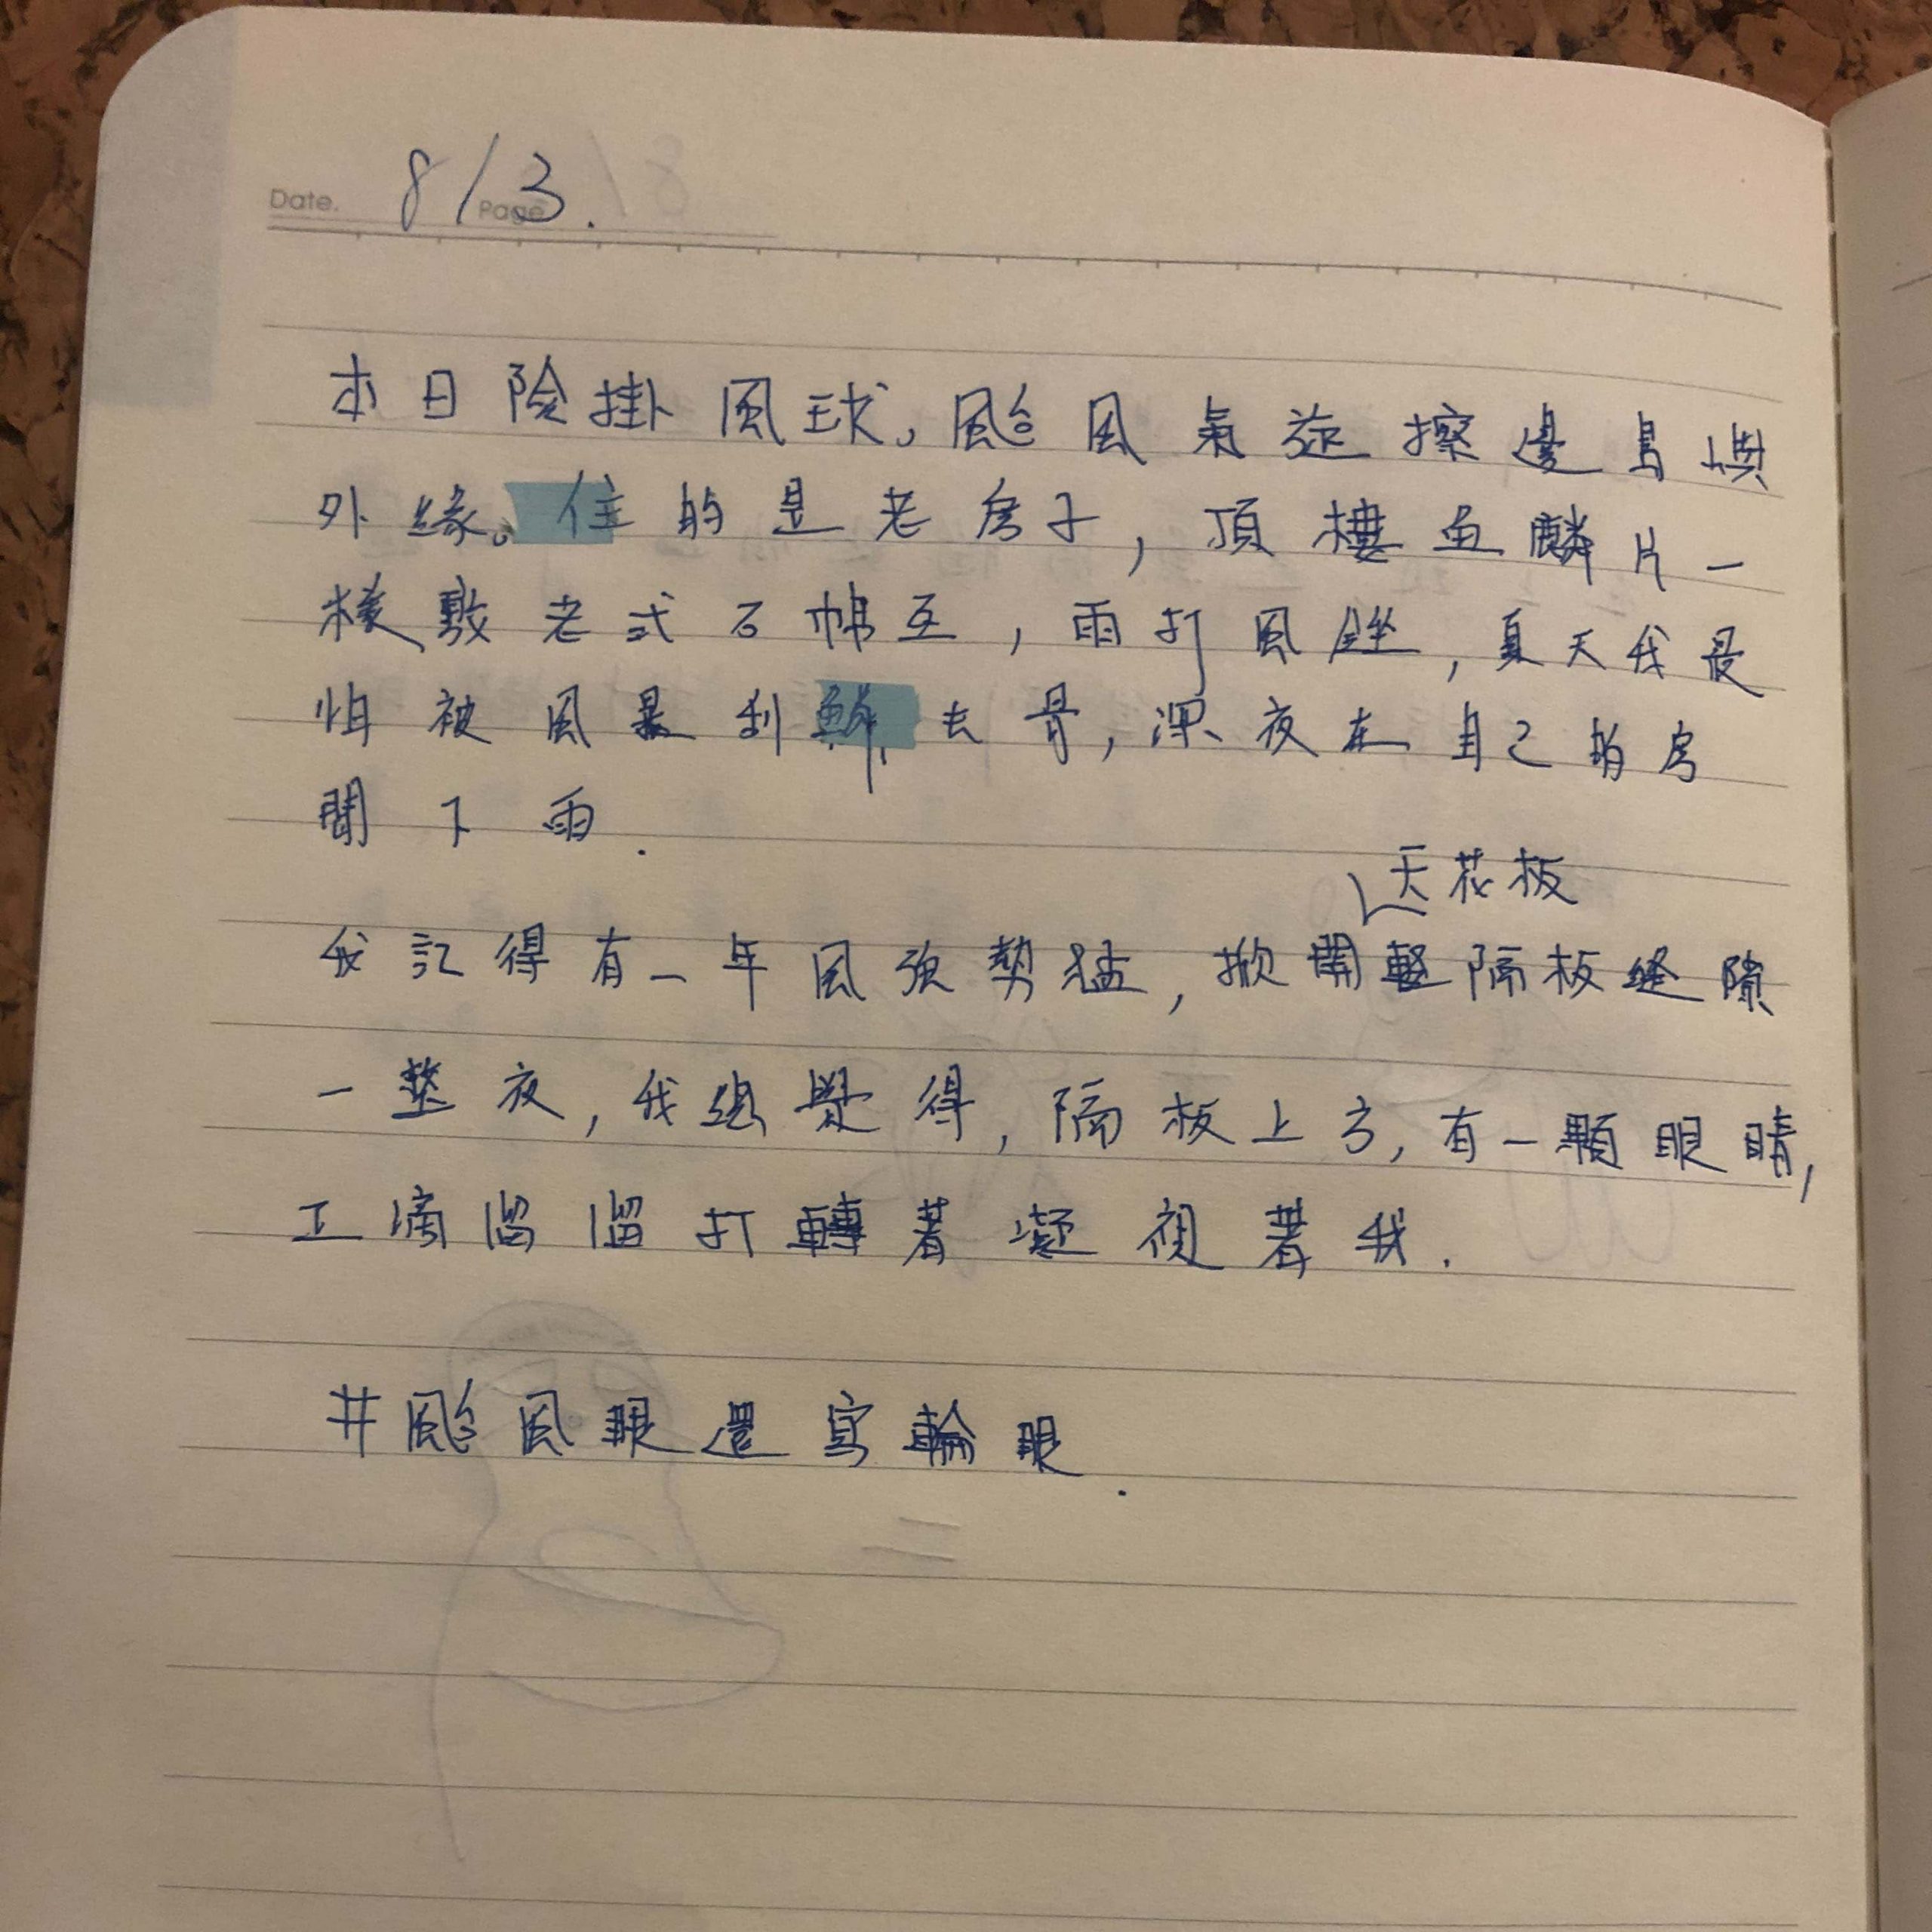 Date. 8/3.
Page
本日險掛風球。颱風氣旋擦邊島嶼
外緣。住的是老房子，頂樓魚麟片一
樣敷老式石棉瓦，雨打風，夏天我最
怕被風暴刮鱗去骨，深夜在自己的房
間下雨.
天花板
我記得有一年風強勢猛，掀開輕隔板縫隙
一整夜，我總覺得，隔板上方，有一顆眼睛，
正滴溜溜打轉著凝視著我.
#颱風眼還寫輪眼.